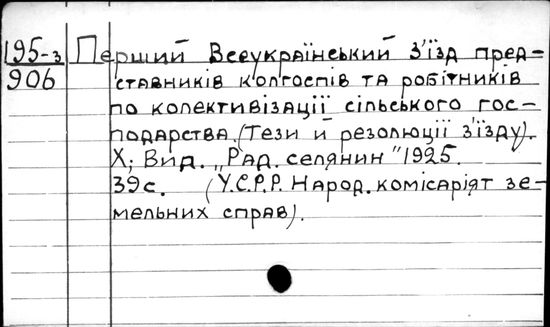 195-з Перший Всеукраїнський З'їзд пред-
906 ставників колгоспів та робітників
по колективізації сільського гос-
подарства. (Тези й резолюції з'їзду).
Х; Вид. „Рад. селянин" 1925.
39с. (У.С.Р.Р. Народ. комісаріят зе-
мельних справ).